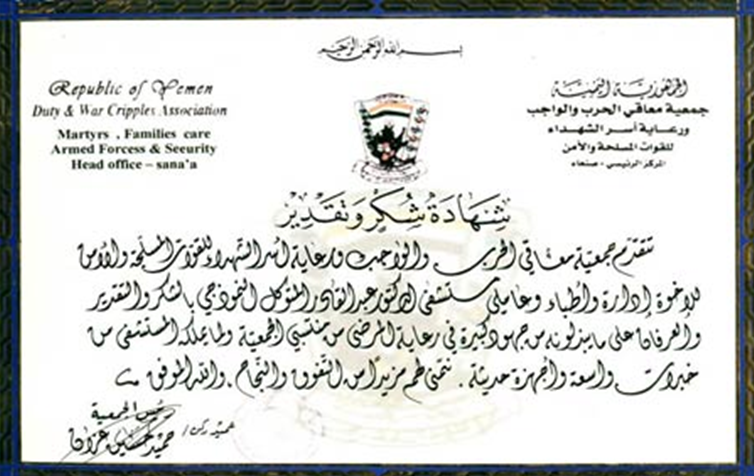 بسم الله الرحمن الرحيم
Republic of Yemen
Duty & War Cripples Association
Martyrs , Families care
Armed Forcess & Seeurity
Head office – sana'a
الجمهورية اليمنية
جمعية معاقي الحرب والواجب
ورعاية أسر الشهداء
للقوات المسلحة والأمن
المركز الرئيسي - صنعاء
شهادة شكر وتقدير
تتقدم جمعية معاقي الحرب والواجب ورعاية أسر الشهداء للقوات المسلحة والأمن
للإخوة إدارة وأطباء وعاملي مستشفى الدكتور عبدالقادر المتوكل النموذجي بالشكر والتقدير
والعرفان على ما يبذلونه من جهود كبيرة في رعاية المرضى من منتسبي الجمعية ولما يملكه المستشفى من
خبرات واسعة وأجهزة حديثة . نتمنى لهم مزيداً من التفوق والنجاح . والله الموفق
رئيس الجمعية
عميد ركن /